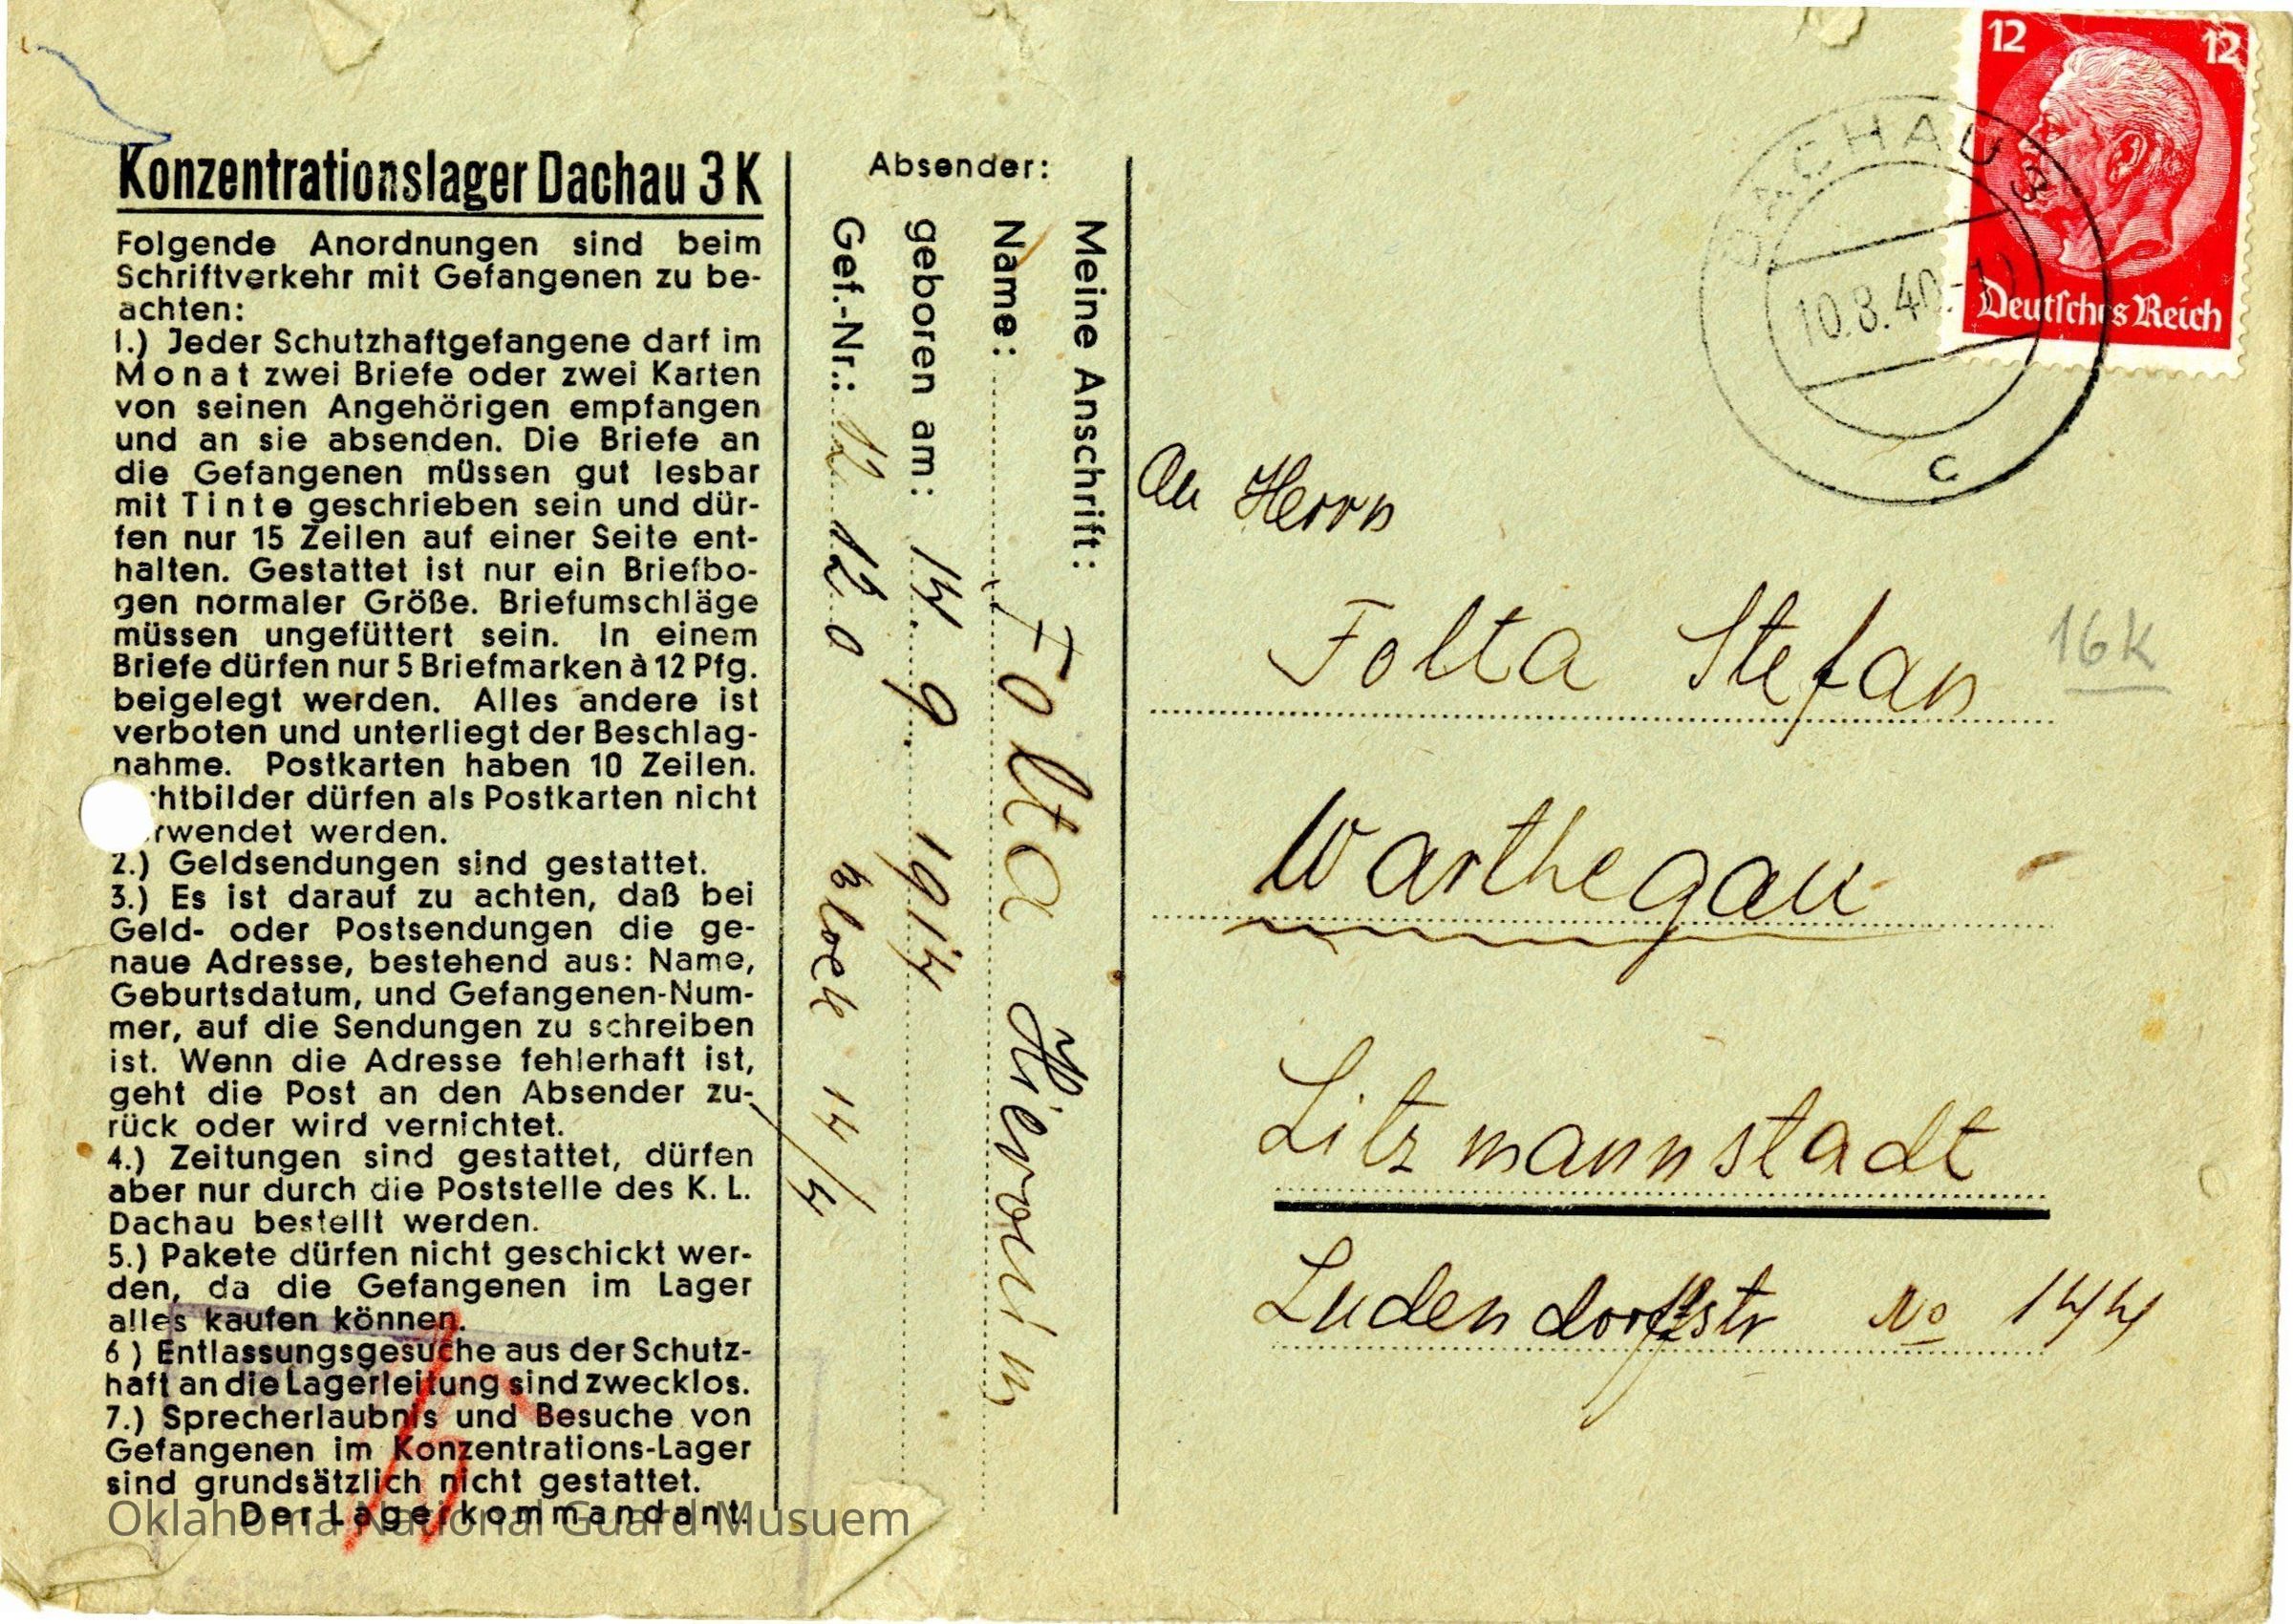 Konzentrationslager Dachau 3 K
Folgende Anordnungen sind beim
Schriftverkehr mit Gefangenen zu be-
achten:
1.) Jeder Schutzhaftgefangene darf im
Monat zwei Briefe oder zwei Karten
von seinen Angehörigen empfangen
und an sie absenden. Die Briefe an
die Gefangenen müssen gut lesbar
mit Tinte geschrieben sein und dür-
fen nur 15 Zeilen auf einer Seite ent-
halten. Gestattet ist nur ein Briefbo-
gen normaler Größe. Briefumschläge
müssen ungefüttert sein. In einem
Briefe dürfen nur 5 Briefmarken à 12 Pfg.
beigelegt werden. Alles andere ist
verboten und unterliegt der Beschlag-
nahme. Postkarten haben 10 Zeilen.
htbilder dürfen als Postkarten nicht
rwendet werden.
2.) Geldsendungen sind gestattet.
3.) Es ist darauf zu achten, daß bei
Geld- oder Postsendungen die ge-
naue Adresse, bestehend aus: Name,
Geburtsdatum, und Gefangenen-Num-
mer, auf die Sendungen zu schreiben
ist. Wenn die Adresse fehlerhaft ist,
geht die Post an den Absender zu-
rück oder wird vernichtet.
4.) Zeitungen sind gestattet, dürfen
aber nur durch die Poststelle des K. L.
Dachau bestellt werden.
5.) Pakete dürfen nicht geschickt wer-
den, da die Gefangenen im Lager
alles kaufen können.
6 ) Entlassungsgesuche aus der Schutz-
haft an die Lagerleitung sind zwecklos.
7.) Sprecherlaubnis und Besuche von
Gefangenen im Konzentrations-Lager
sind grundsätzlich nicht gestattet.
Der Lagerkommandant.
Oklahoma National Guard Musuem
Absender:
Meine Anschrift:
Name: Folta
geboren am: 14. 9. 1914
Gef.-Nr.: 12 12 0 Block 14/4
An Herrn
Folta Stefan
Warthegau
Litzmannstadt
Ludendorffstr No 144
16K
12 12
Deutsches Reich
DACHAU 3
10.8.40.-12
C